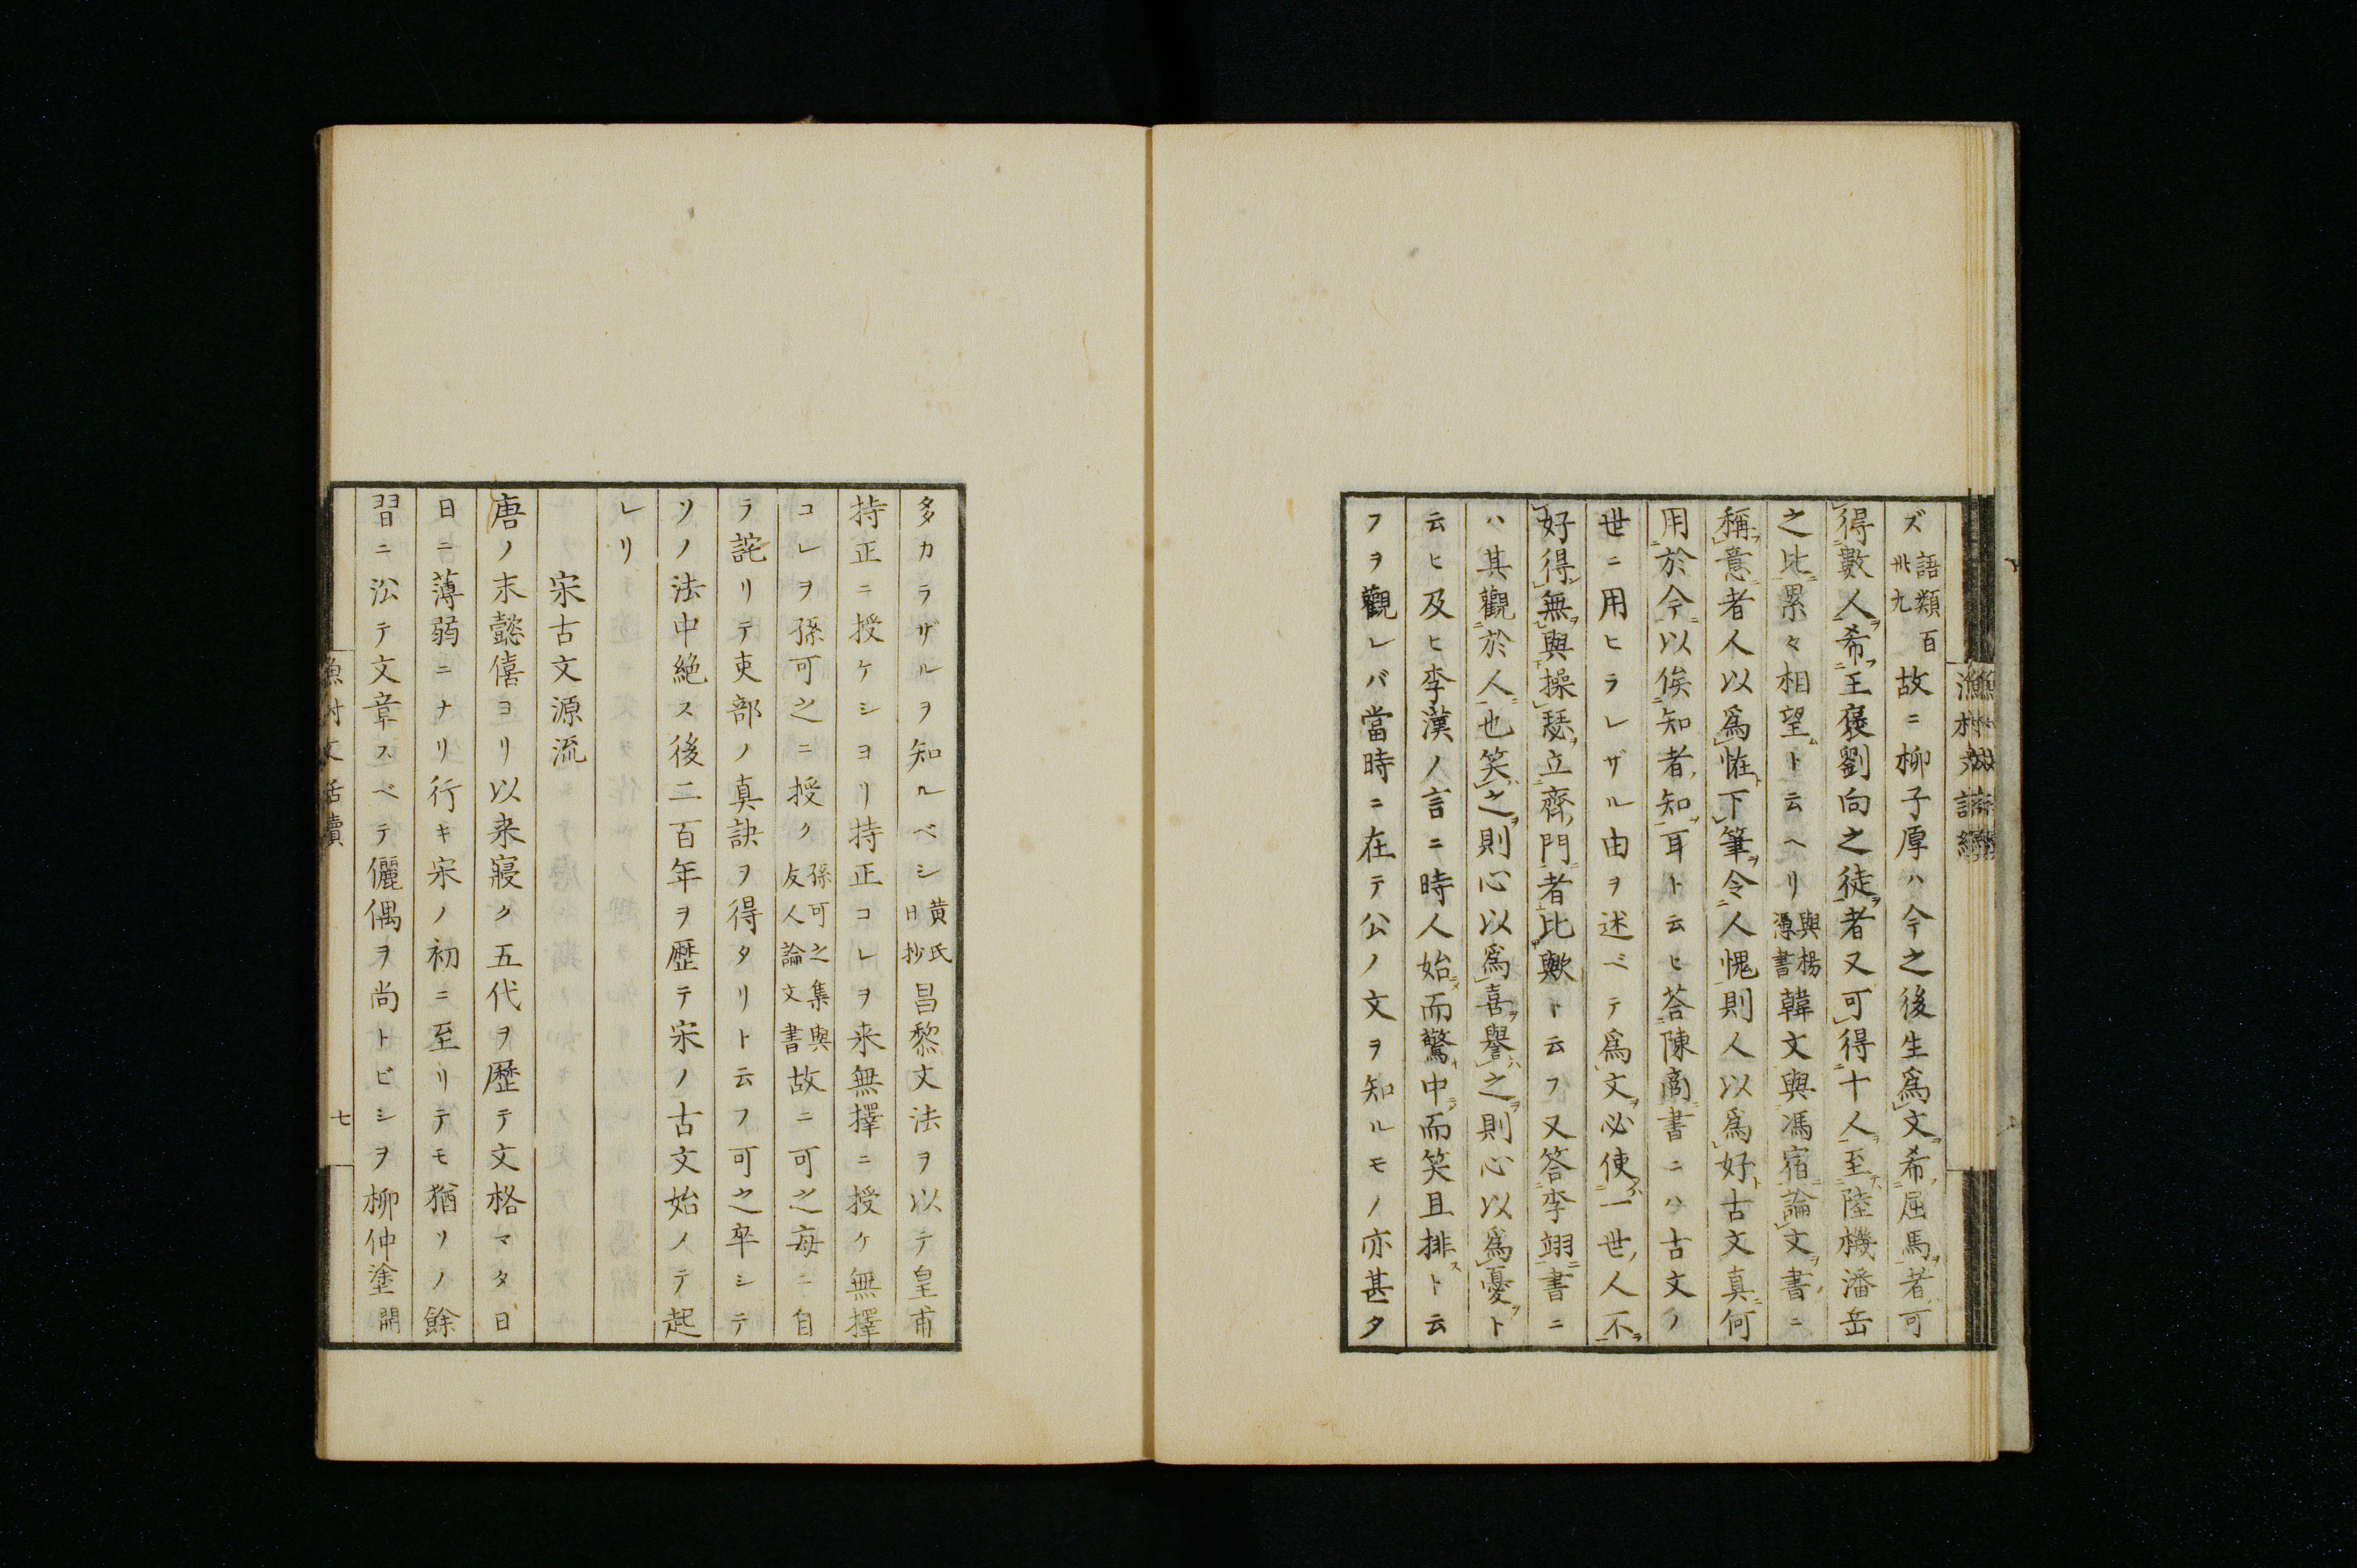 ズ語類百卅九故ニ柳子厚ハ今之後生爲文希屈馬者可
得數人希王襃劉向之徒者又可得十人至陸機潘岳
之比累々相望ト云ヘリ與楊憑書韓文與馮宿論文書ニ
稱意者人以爲怪下筆令人愧則人以爲好古文真何
用於今以俟知者知耳ト云ヒ荅陳商書ニハ古文ノ
世ニ用ヒラレザル由ヲ述ベテ爲文必使一世人不
好得無與操瑟立齊門者比歟ト云フ又答李翊書ニ
ハ其觀於人也笑之則心以爲喜譽之則心以爲憂ト
云ヒ及ヒ李漢ノ言ニ時人始而驚中而笑且排ト云
フヲ觀レバ當時ニ在テ公ノ文ヲ知ルモノ亦甚タ
多カラザルヲ知ルベシ黄氏日抄昌黎文法ヲ以テ皇甫
持正ニ授ケシヨリ持正コレヲ来無擇ニ授ケ無擇
コレヲ孫可之ニ授ク孫可之集與友人論文書故ニ可之毎ニ自
ラ詫リテ吏部ノ真訣ヲ得タリト云フ可之卒シテ
ソノ法中絶ス後二百年ヲ歴テ宋ノ古文始ノテ起
レリ
宋古文源流
唐ノ末懿僖ヨリ以来寢ク五代ヲ歴テ文格マタ日
日ニ薄弱ニナリ行キ宋ノ初ニ至リテモ猶ソノ餘
習ニ㳂テ文章スベテ儷偶ヲ尚トビシヲ柳仲塗開
漁村文話續
七